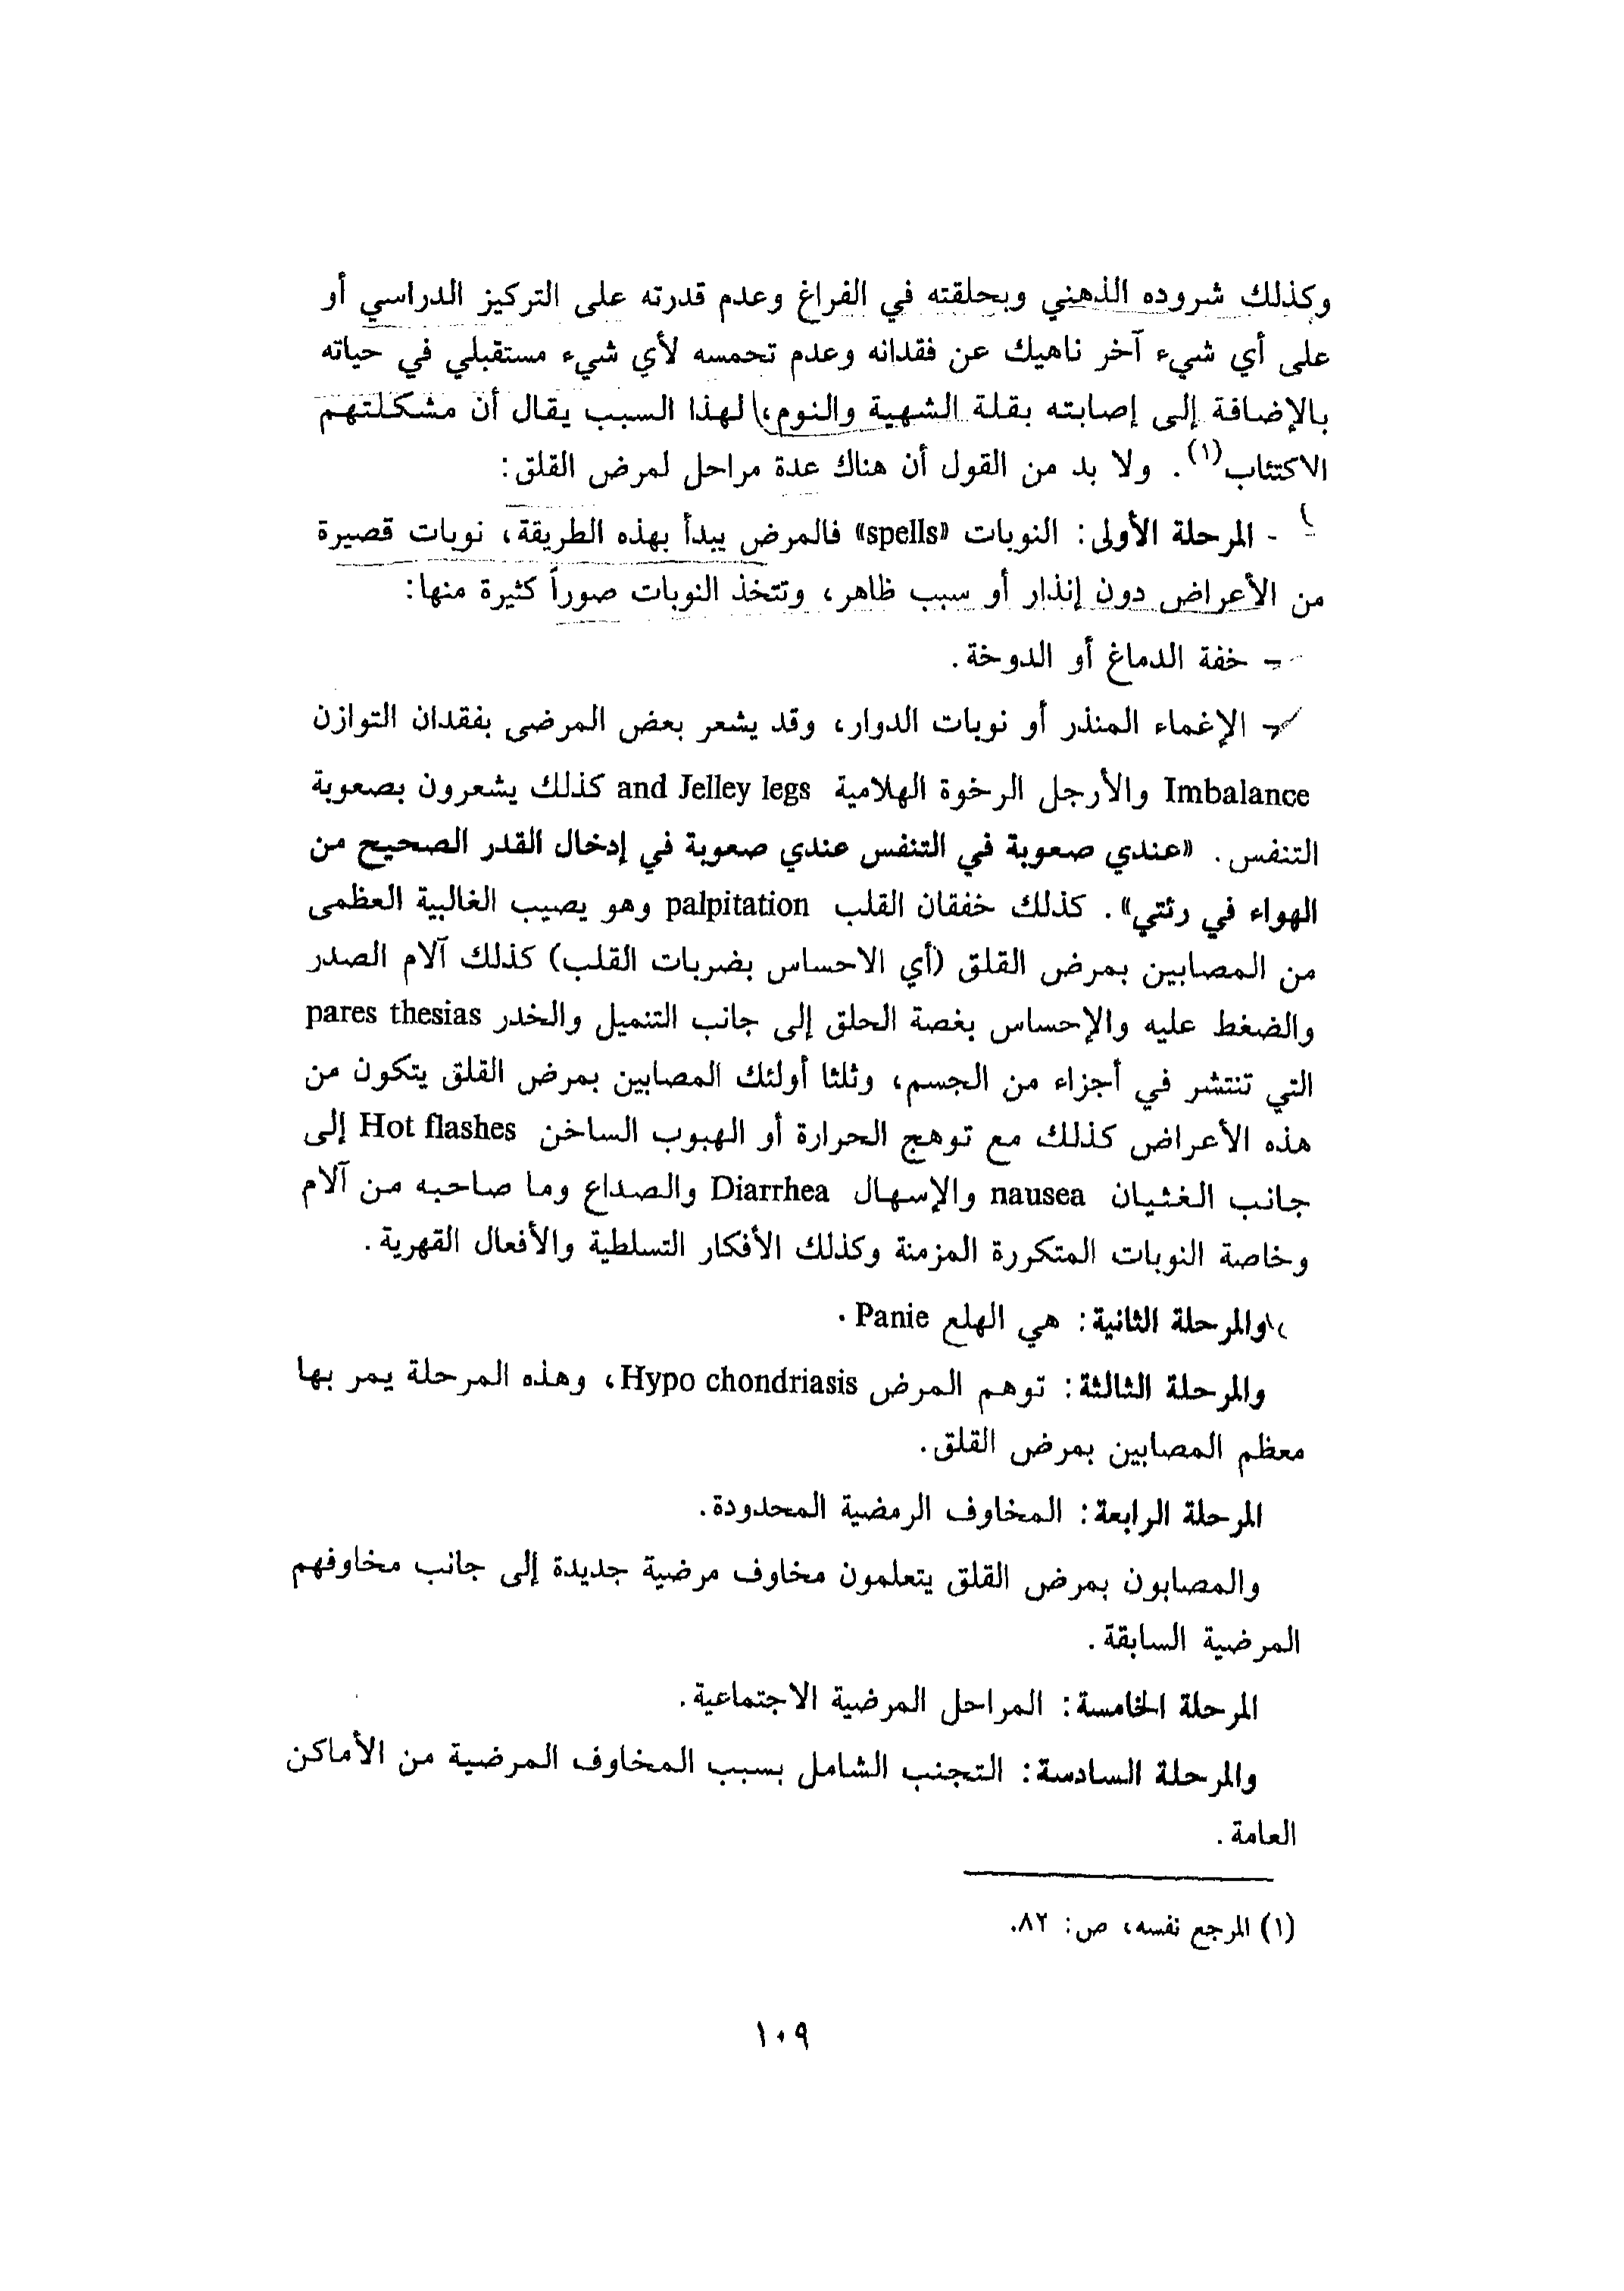 وكذلك شروده الذهني وبحلقته في الفراغ وعدم قدرته على التركيز الدراسي أو
على أي شيء آخر ناهيك عن فقدانه وعدم تحمسه لأي شيء مستقبلي في حياته
بالإضافة إلى إصابته بقلة الشهية والنوم، لهذا السبب يقال أن مشكلتهم
الاكتئاب(١). ولا بد من القول أن هناك عدة مراحل لمرض القلق:
- المرحلة الأولى: النوبات «spells» فالمرض يبدأ بهذه الطريقة، نوبات قصيرة
من الأعراض دون إنذار أو سبب ظاهر، وتتخذ النوبات صوراً كثيرة منها:
- خفة الدماغ أو الدوخة.
- الإغماء المنذر أو نوبات الدوار، وقد يشعر بعض المرضى بفقدان التوازن
Imbalance والأرجل الرخوة الهلامية and Jelley legs كذلك يشعرون بصعوبة
التنفس. «عندي صعوبة في التنفس عندي صعوبة في إدخال القدر الصحيح من
الهواء في رئتي». كذلك خفقان القلب palpitation وهو يصيب الغالبية العظمى
من المصابين بمرض القلق (أي الاحساس بضربات القلب) كذلك آلام الصدر
والضغط عليه والإحساس بغصة الحلق إلى جانب التنميل والخدر pares thesias
التي تنتشر في أجزاء من الجسم، وثلثا أولئك المصابين بمرض القلق يتكون من
هذه الأعراض كذلك مع توهج الحرارة أو الهبوب الساخن Hot flashes إلى
جانب الغثيان nausea والإسهال Diarrhea والصداع وما صاحبه من آلام
وخاصة النوبات المتكررة المزمنة وكذلك الأفكار التسلطية والأفعال القهرية.
والمرحلة الثانية: هي الهلع Panie.
والمرحلة الثالثة: توهم المرض Hypo chondriasis، وهذه المرحلة يمر بها
معظم المصابين بمرض القلق.
المرحلة الرابعة: المخاوف الرمضية المحدودة.
والمصابون بمرض القلق يتعلمون مخاوف مرضية جديدة إلى جانب مخاوفهم
المرضية السابقة.
المرحلة الخامسة: المراحل المرضية الاجتماعية.
والمرحلة السادسة: التجنب الشامل بسبب المخاوف المرضية من الأماكن
العامة.
(١) المرجع نفسه، ص: ٨٢.
١٠٩